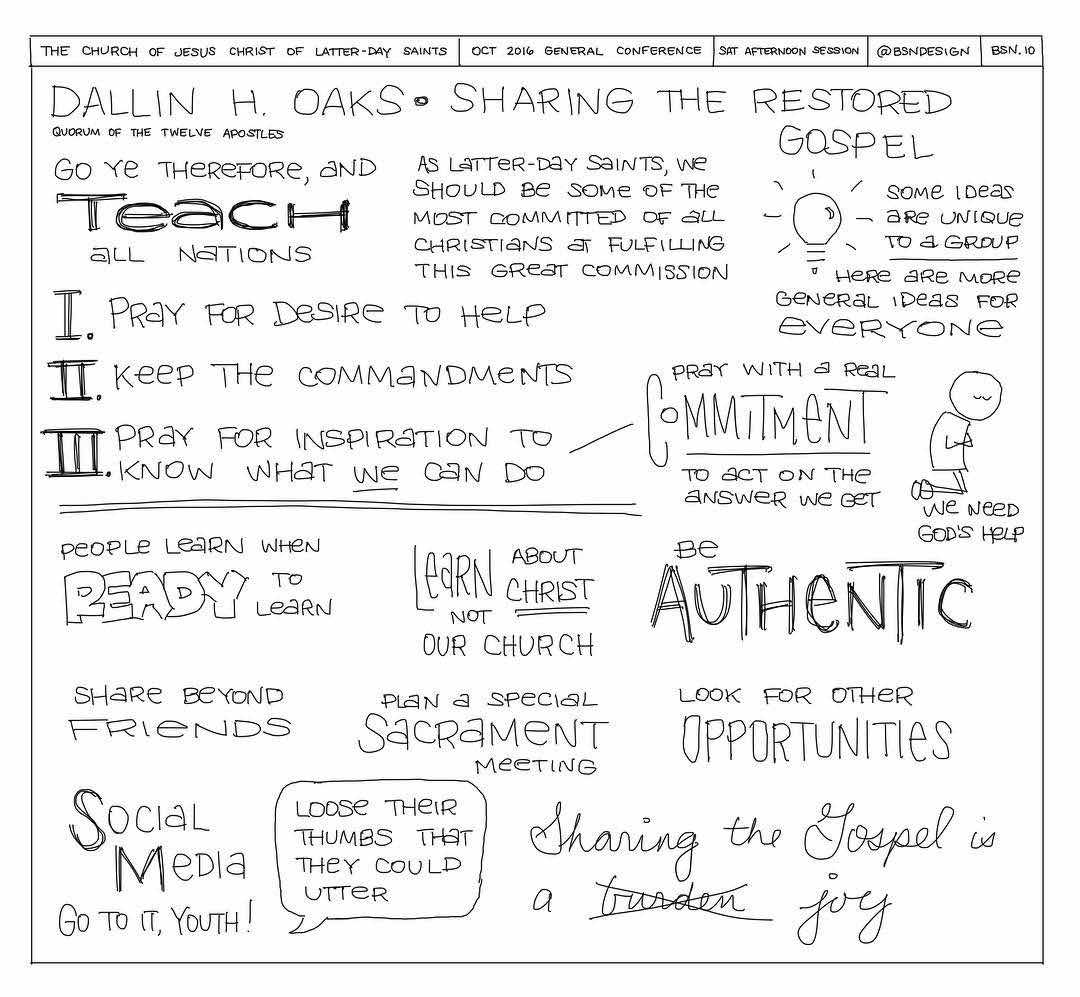 THE CHURCH OF JESUS CHRIST OF LATTER-DAY SAINTS
OCT 2016 GENERAL CONFERENCE
SAT AFTERNOON SESSION
@BSNDESIGN
BSN.10
DALLIN H. OAKS • SHARING THE RESTORED
GOSPEL
QUORUM OF THE TWELVE APOSTLES
GO YE THEREFORE, AND
TEACH
ALL NATIONS
AS LATTER-DAY SAINTS, WE
SHOULD BE SOME OF THE
MOST COMMITTED OF ALL
CHRISTIANS AT FULFILLING
THIS GREAT COMMISSION
SOME IDEAS
ARE UNIQUE
TO A GROUP
HERE ARE MORE
GENERAL IDEAS FOR
EVERYONE
I. PRAY FOR DESIRE TO HELP
II. KEEP THE COMMANDMENTS
III. PRAY FOR INSPIRATION TO
KNOW WHAT WE CAN DO
PRAY WITH A REAL
COMMITMENT
TO ACT ON THE
ANSWER WE GET
WE NEED
GOD'S HELP
PEOPLE LEARN WHEN
READY TO
LEARN
LEARN ABOUT
CHRIST
NOT
OUR CHURCH
BE
AUTHENTIC
SHARE BEYOND
FRIENDS
PLAN A SPECIAL
SACRAMENT
MEETING
LOOK FOR OTHER
OPPORTUNITIES
SOCIAL
MEDIA
GO TO IT, YOUTH!
LOOSE THEIR
THUMBS THAT
THEY COULD
UTTER
Sharing the Gospel is
a burden joy